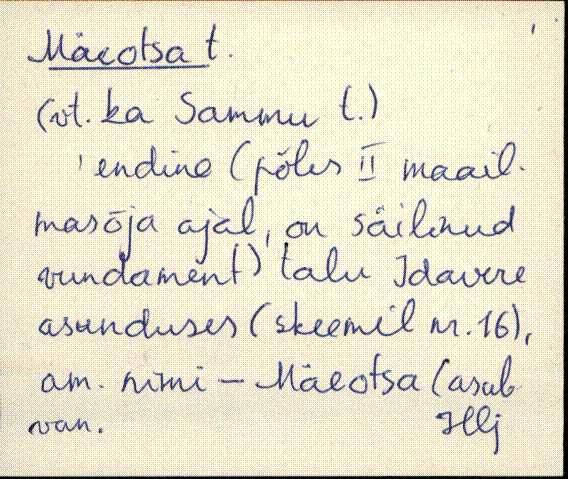 Mäeotsa t.
(vt. ka Sammu t.)
'endine (põles II maail-
masõja ajal, on säilinud
vundament) talu Idavere
asunduses (skeemil nr. 16),
am. nimi – Mäeotsa (asub
van. Hlj